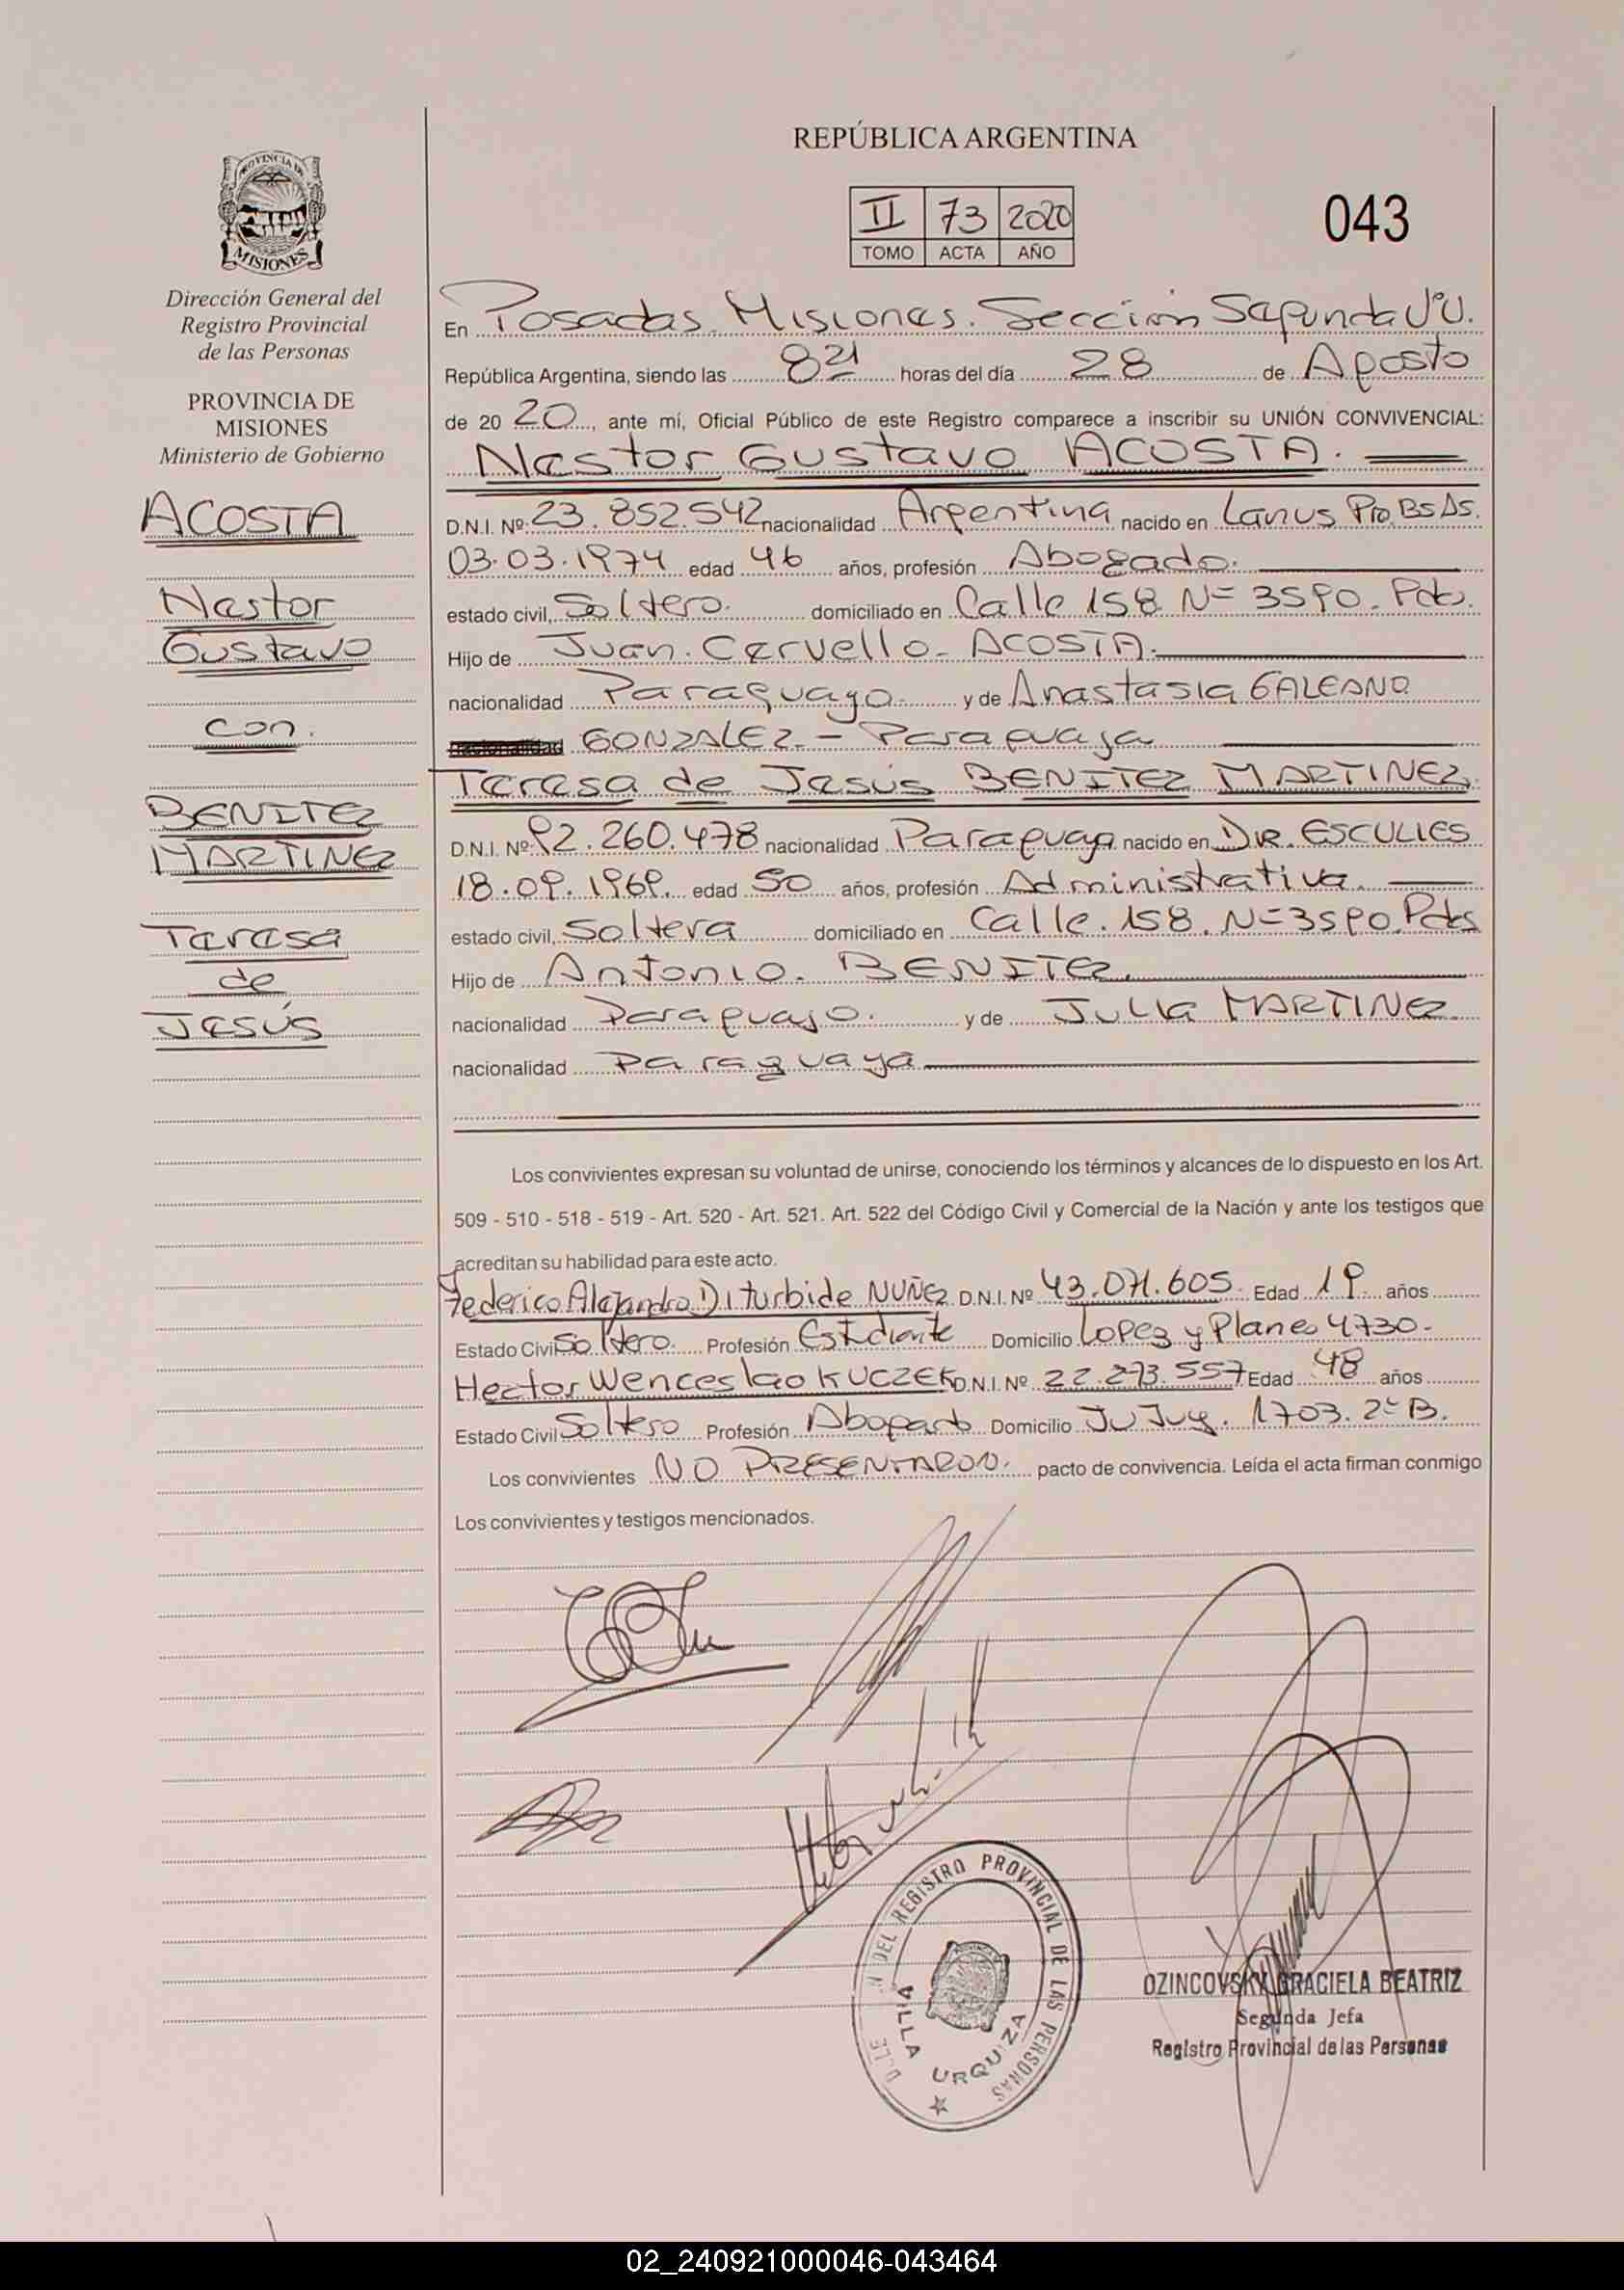 REPÚBLICA ARGENTINA
II 73 2020
TOMO ACTA AÑO
043
PROVINCIA DE
MISIONES
Dirección General del
Registro Provincial
de las Personas
PROVINCIA DE
MISIONES
Ministerio de Gobierno
ACOSTA
Nestor
Gustavo
con.
BENITEZ
MARTINEZ
Teresa
de
Jesús
En Posadas. Misiones. Sección Segunda V°U.
República Argentina, siendo las 8 21 horas del día 28 de Agosto
de 20 20, ante mí, Oficial Público de este Registro comparece a inscribir su UNIÓN CONVIVENCIAL:
Nestor Gustavo ACOSTA.
D.N.I. Nº 23.852.542 nacionalidad Argentina nacido en Lanus Pro. BsAs.
03.03.1974 edad 46 años, profesión Abogado.
estado civil, Soltero. domiciliado en Calle 158 N= 3590. Pdas.
Hijo de Juan. Cervello. ACOSTA.
nacionalidad Paraguayo. y de Anastasia GALEANO
nacionalidad GONZALEZ - Paraguaya
Teresa de Jesús BENITEZ MARTINEZ.
D.N.I. Nº 92.260.478 nacionalidad Paraguaya nacido en DVR. ESCULIES
18.09.1969. edad 50 años, profesión Administrativa.
estado civil, Soltera domiciliado en Calle. 158. N=3590. Pdas
Hijo de Antonio. BENITEZ.
nacionalidad Paraguayo. y de Julia MARTINEZ
nacionalidad Paraguaya
Los convivientes expresan su voluntad de unirse, conociendo los términos y alcances de lo dispuesto en los Art.
509 - 510 - 518 - 519 - Art. 520 - Art. 521. Art. 522 del Código Civil y Comercial de la Nación y ante los testigos que
acreditan su habilidad para este acto.
Federico Alejandro Diturbide NUÑEZ D.N.I. Nº 43.071.605. Edad 19 años
Estado Civil Soltero. Profesión Estudiante Domicilio Lopez y Planes 4730.
Hector Wenceslao KUCZEK D.N.I. Nº 22.273.557 Edad 48 años
Estado Civil Soltero Profesión Abogado Domicilio JuJuy. 1703. 2° B.
Los convivientes NO PRESENTARON. pacto de convivencia. Leída el acta firman conmigo
Los convivientes y testigos mencionados.
DEL REGISTRO PROVINCIAL DE LAS PERSONAS
VILLA URQUIZA
OZINCOVSKY GRACIELA BEATRIZ
Segunda Jefa
Registro Provincial de las Personas
02_240921000046-043464